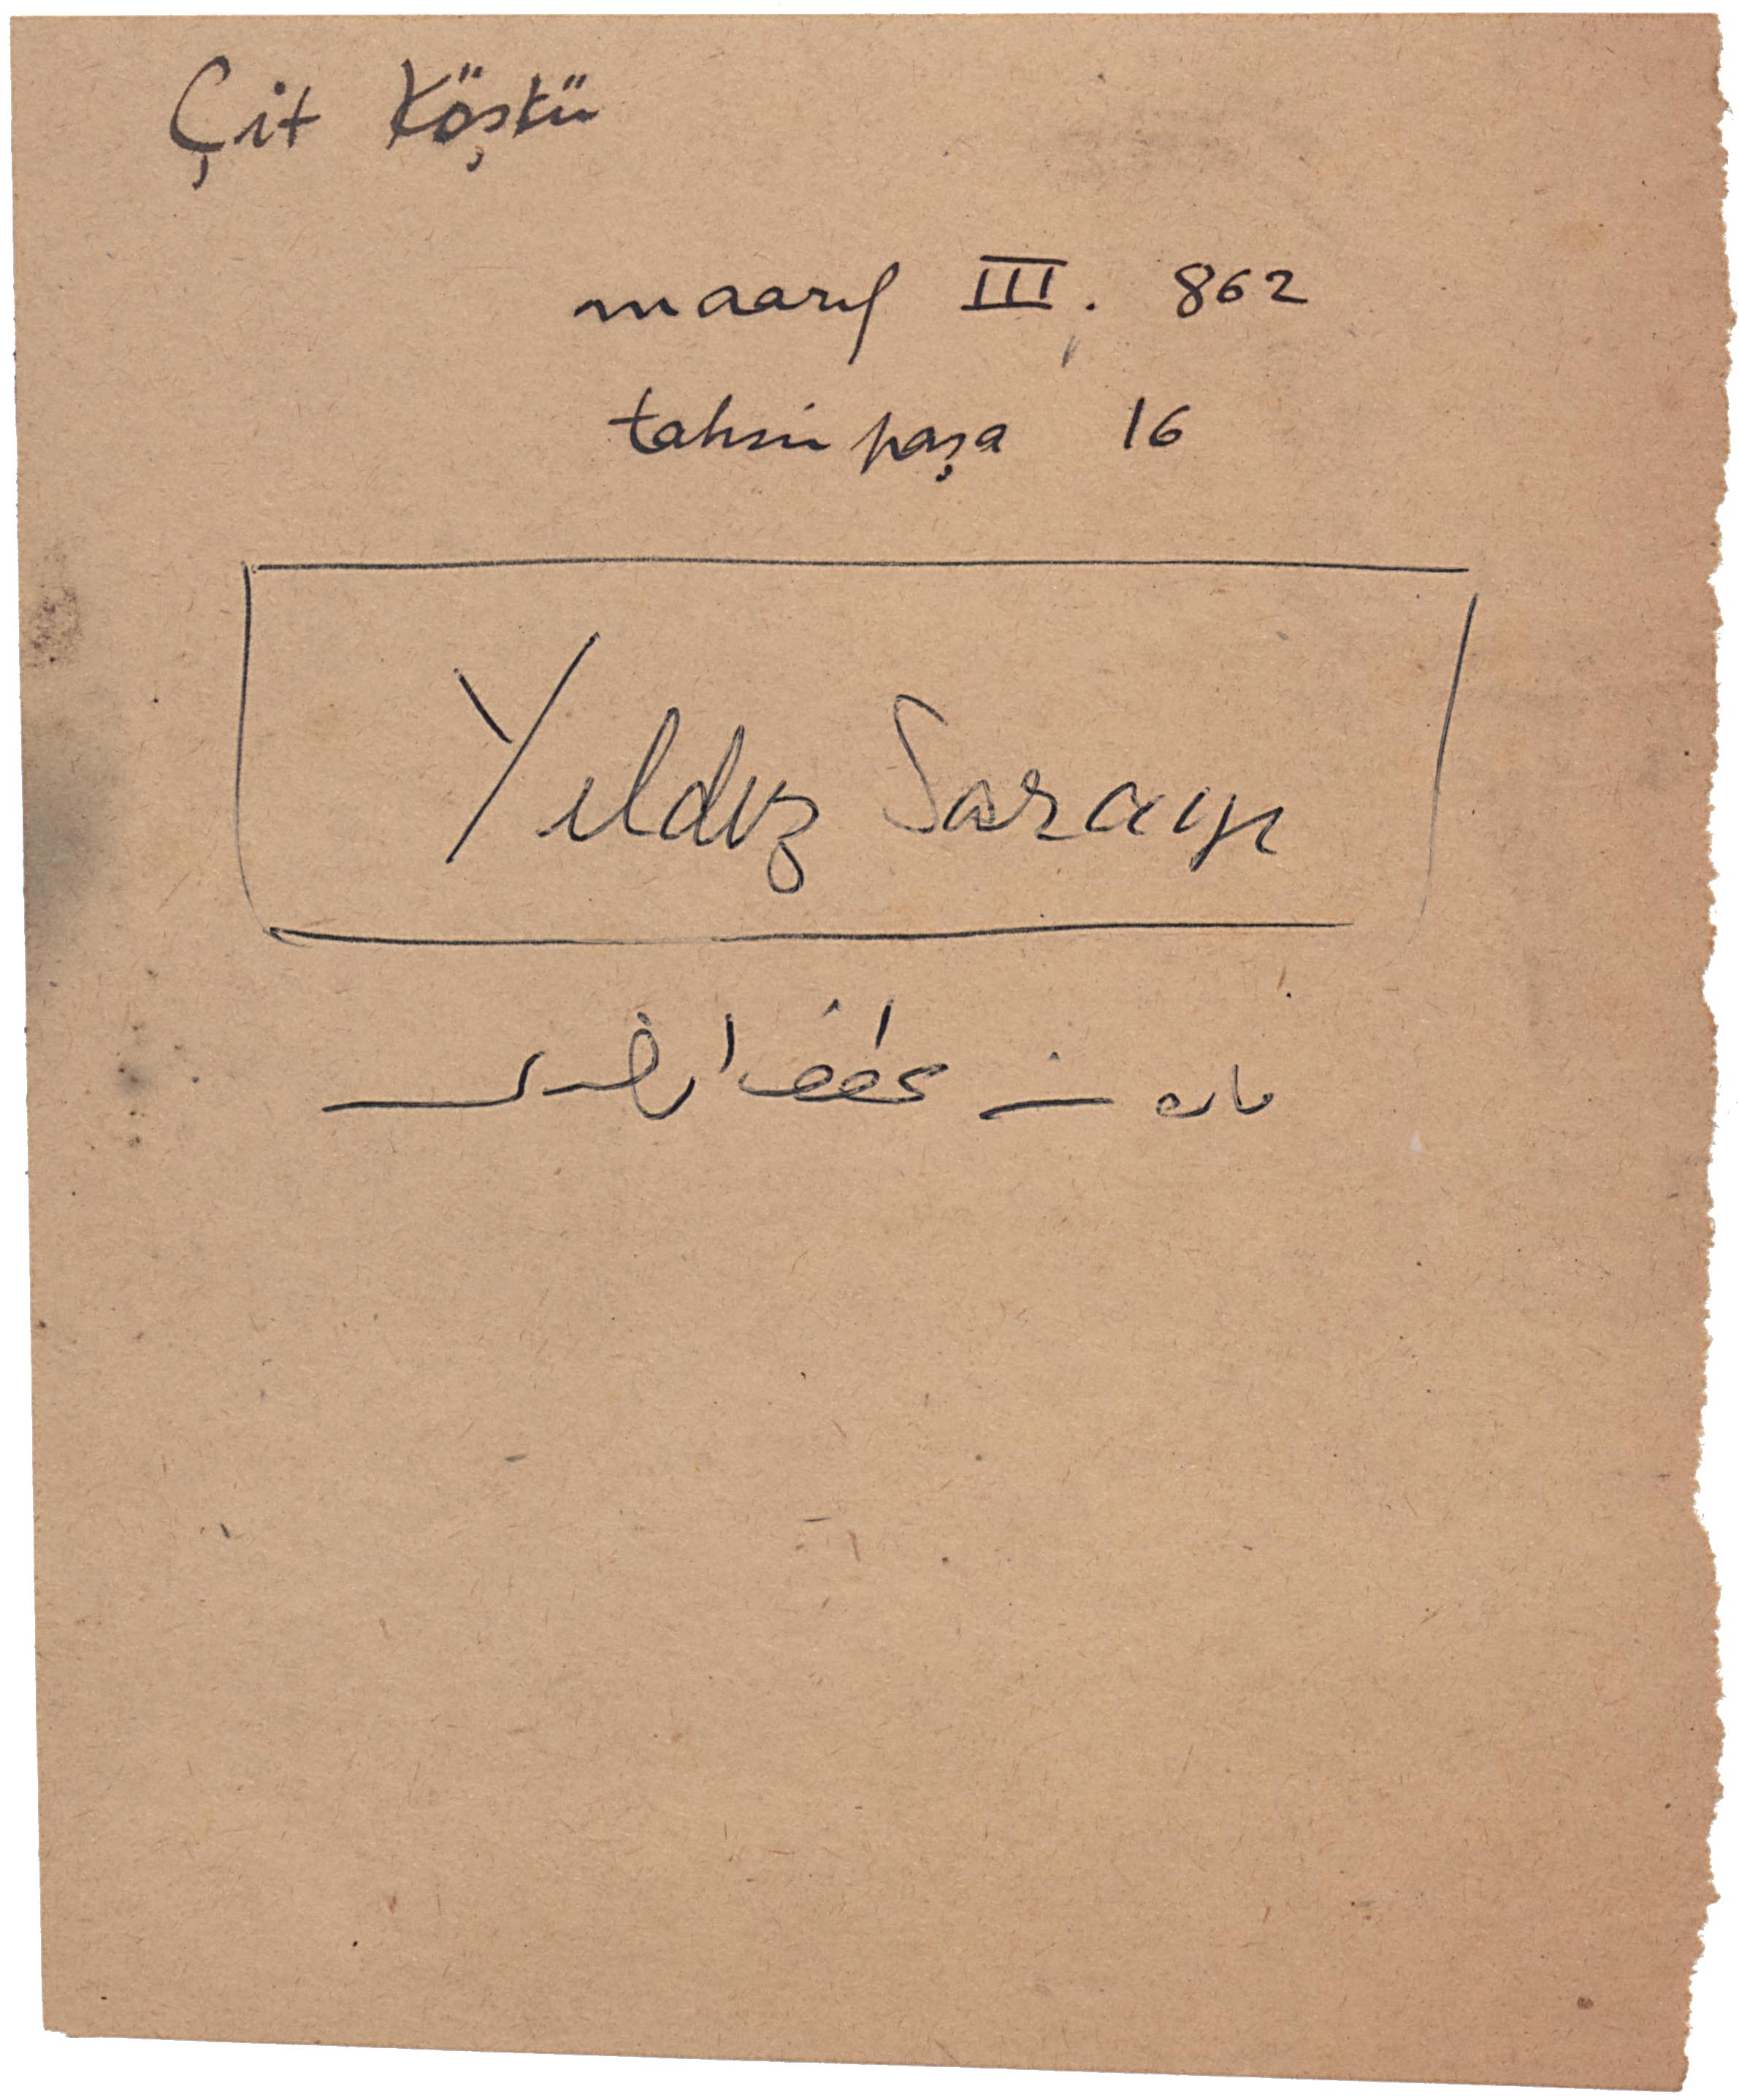 Çit Köşkü
maarif III. 862
tahsin paşa 16
Yıldız Sarayı